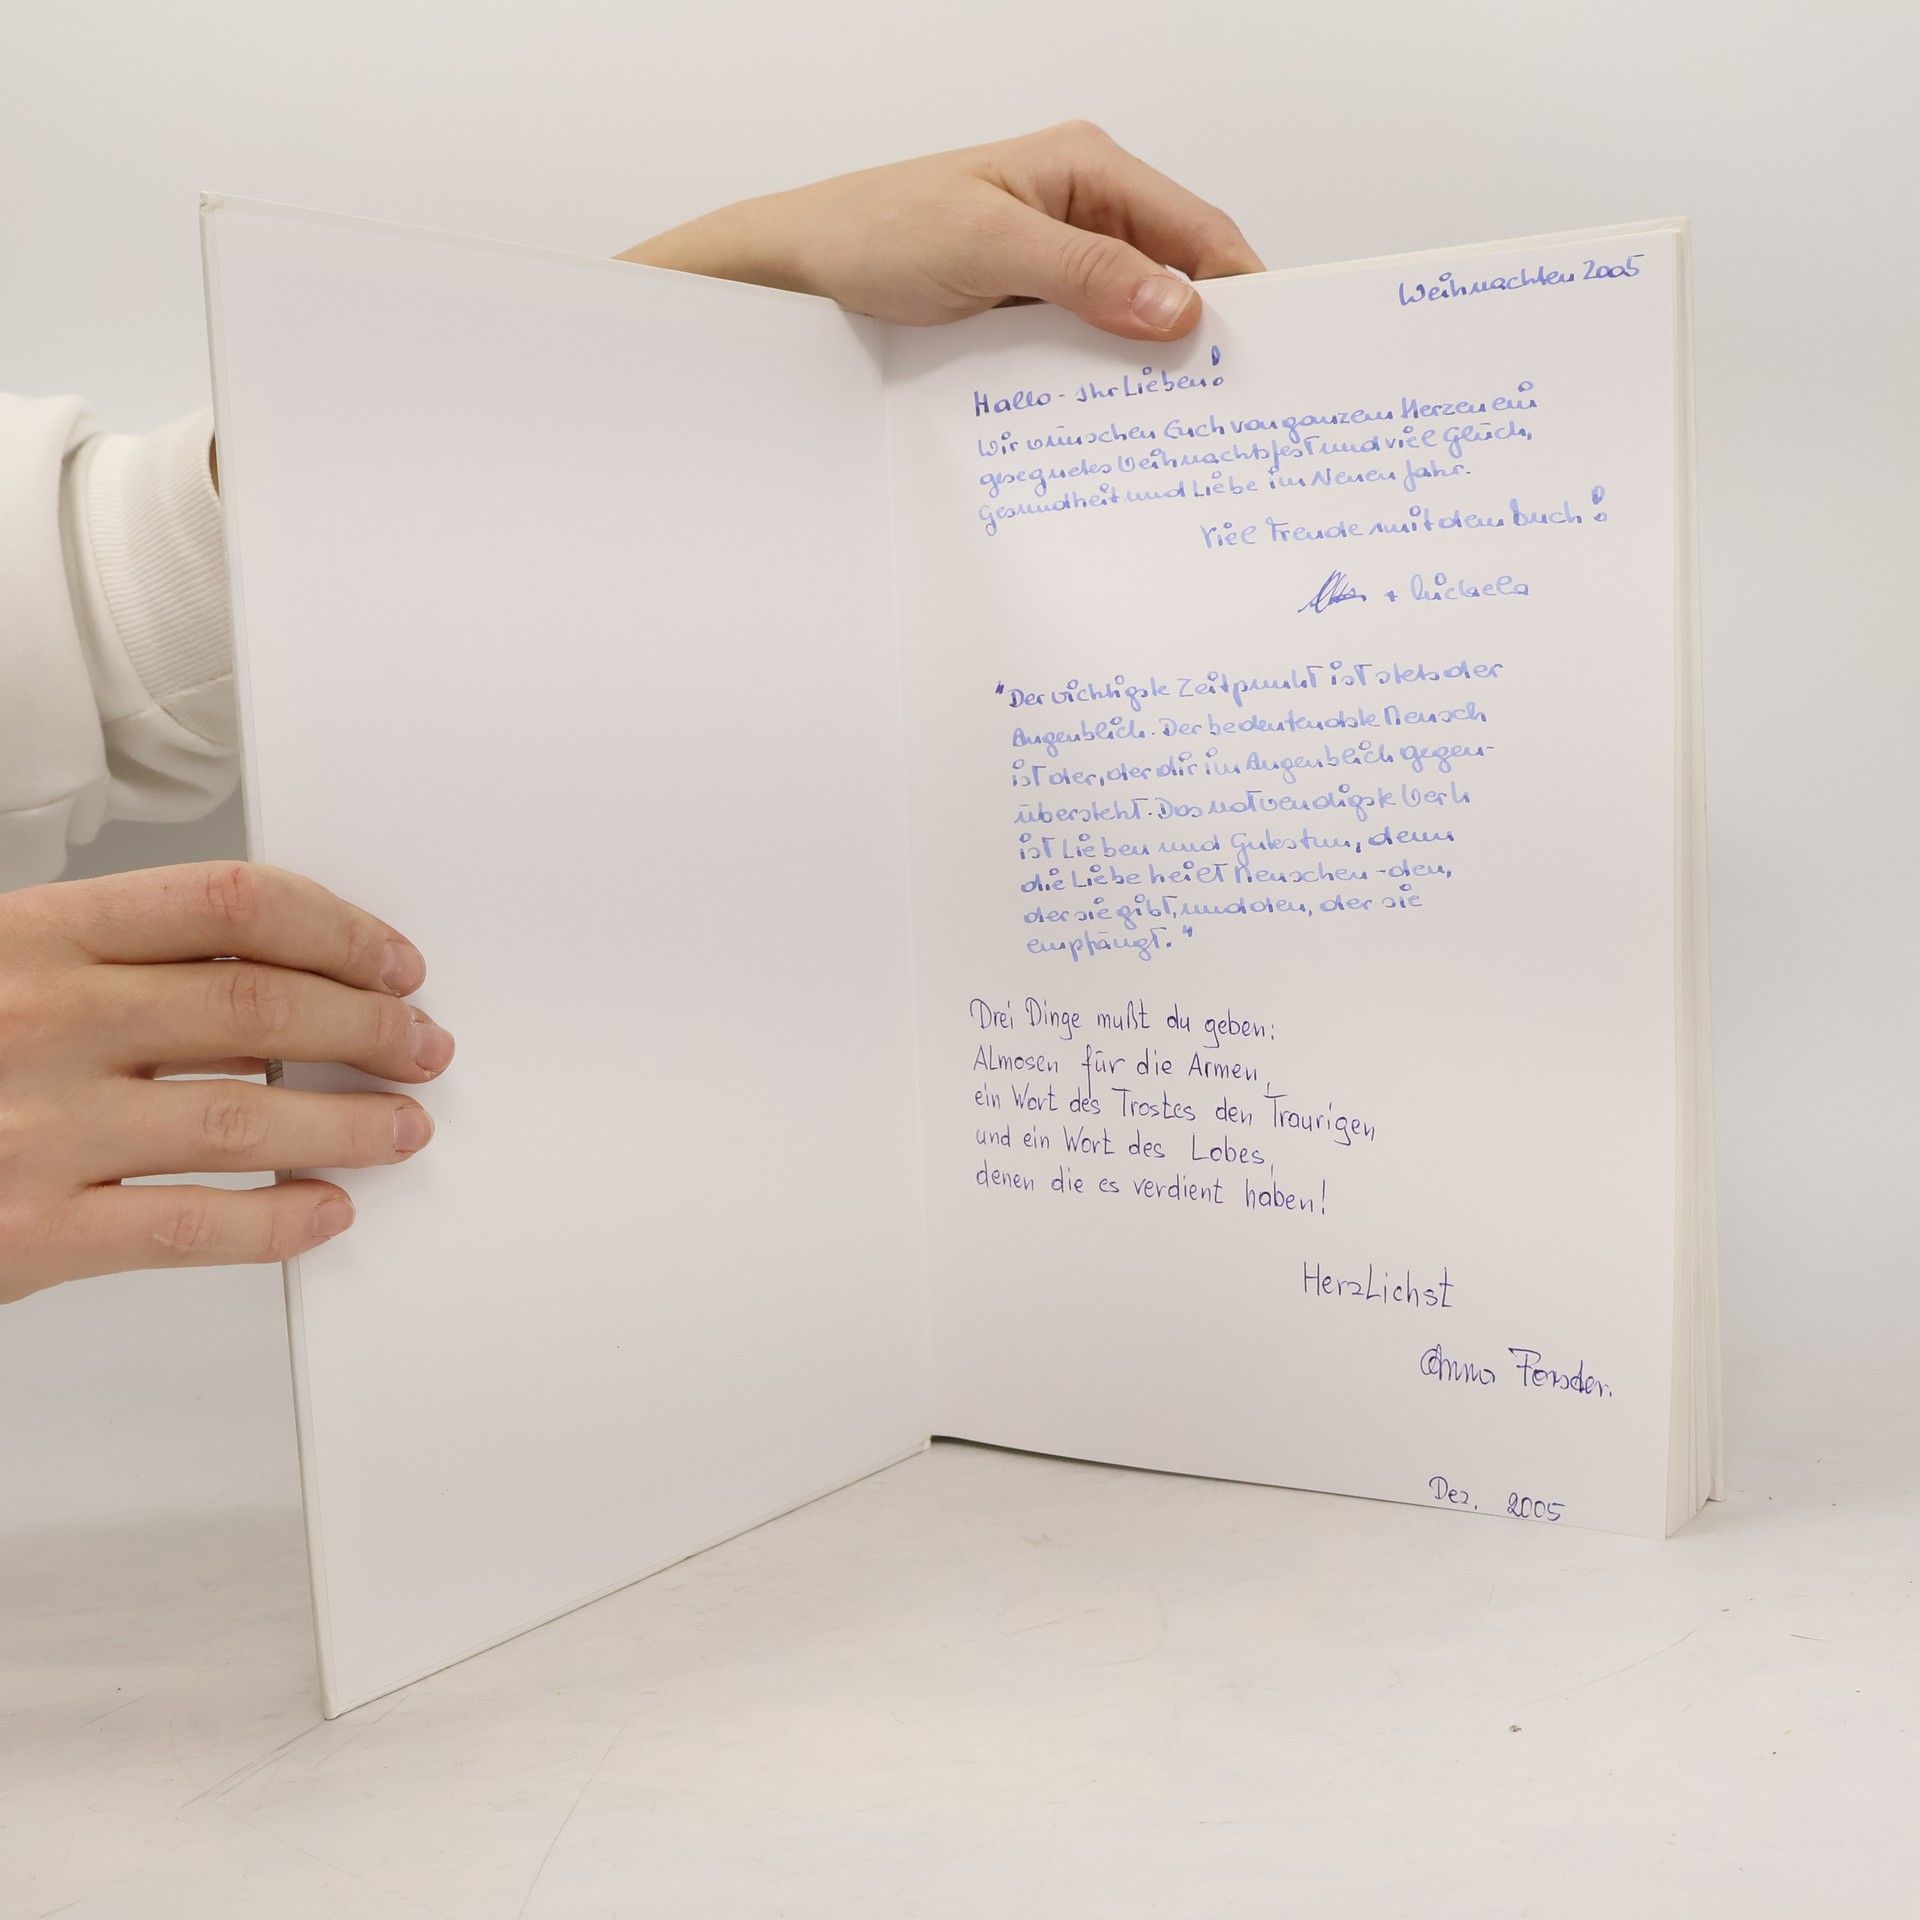 Weihnachten 2005
Hallo - Ihr Lieben!
Wir wünschen Euch von ganzem Herzen ein
gesegnetes Weihnachtsfest und viel Glück,
Gesundheit und Liebe im Neuen Jahr.
Viel Freude mit dem Buch!
+ Michaela
"Der wichtigste Zeitpunkt ist stets der
Augenblick. Der bedeutendste Mensch
ist der, der dir im Augenblick gegen-
übersteht. Das notwendigste Werk
ist Lieben und Gutes tun, denn
die Liebe heilt Menschen - den,
der sie gibt, und den, der sie
empfängt."
Drei Dinge mußt du geben:
Almosen für die Armen,
ein Wort des Trostes den Traurigen
und ein Wort des Lobes,
denen die es verdient haben!
Herzlichst
Anna
Dez. 2005